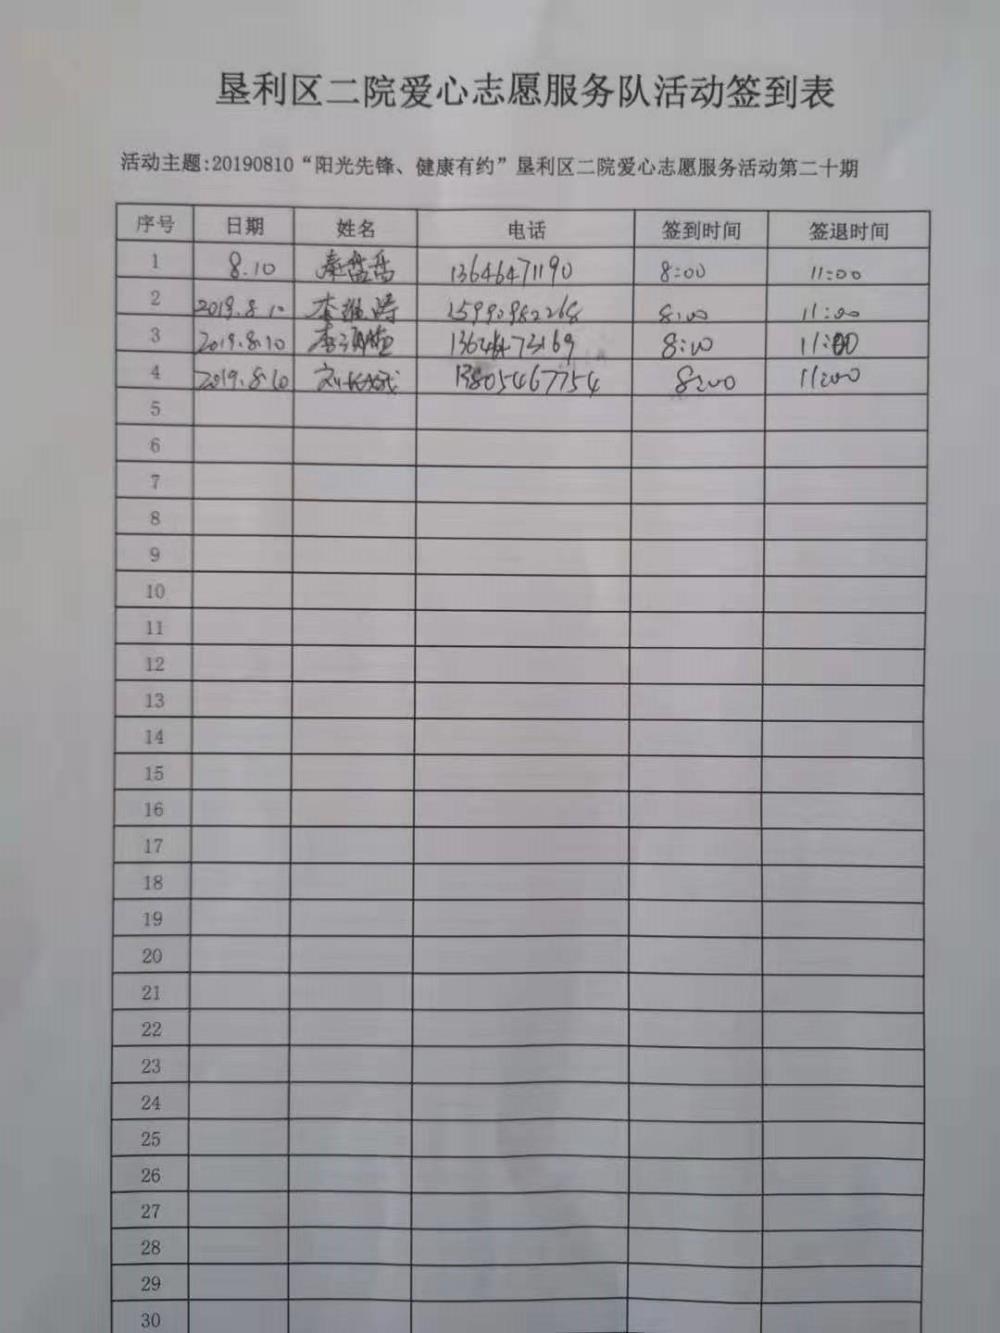 垦利区二院爱心志愿服务队活动签到表
活动主题:20190810“阳光先锋、健康有约”垦利区二院爱心志愿服务活动第二十期
序号 日期 姓名 电话 签到时间 签退时间
1 8.10 秦盘盘 13646471190 8:00 11:00
2 2019.8.10 李 8:00 11:00
3 2019.8.10 李 8:00 11:00
4 2019.8.10 刘长成 13805467754 8:00 11:00
5
6
7
8
9
10
11
12
13
14
15
16
17
18
19
20
21
22
23
24
25
26
27
28
29
30